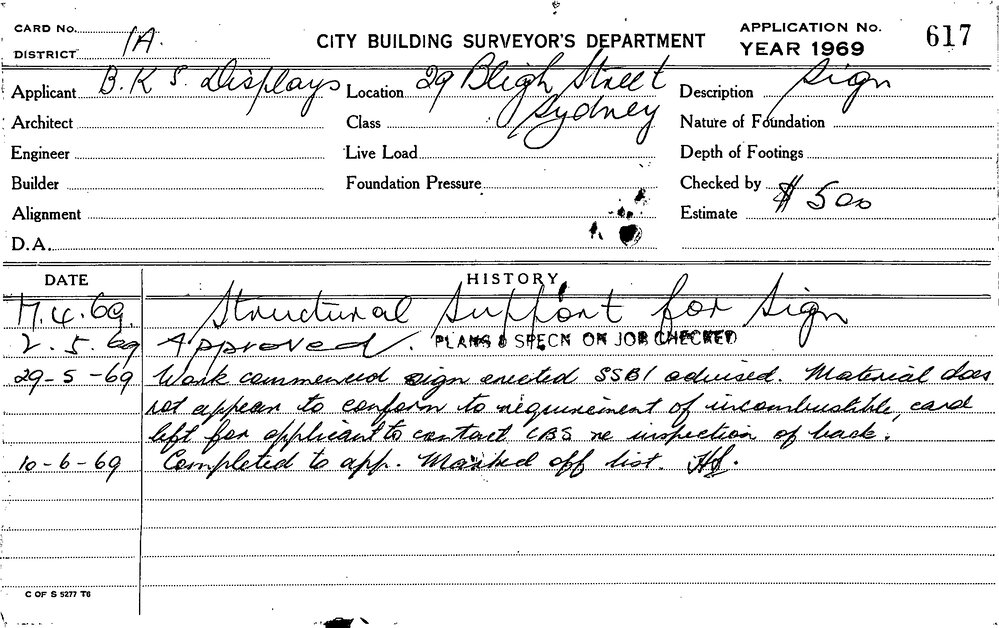 CARD No.
DISTRICT 1A.
CITY BUILDING SURVEYOR'S DEPARTMENT
APPLICATION No. 617
YEAR 1969
Applicant B.K.S. Displays
Location 29 Bligh Street
Sydney
Description Sign
Architect
Class
Nature of Foundation
Engineer
Live Load
Depth of Footings
Builder
Foundation Pressure
Checked by
Alignment
Estimate $ 500
D.A.
DATE HISTORY
17.4.69. Structural Support for Sign
2.5.69 Approved. PLANS & SPECN ON JOB CHECKED
29-5-69 Work commenced sign erected SSB1 advised. Material does
not appear to conform to requirement of incombustible, card
left for applicant to contact CBS re inspection of back.
10-6-69 Completed to app. Marked off list.
C OF S 5277 T6